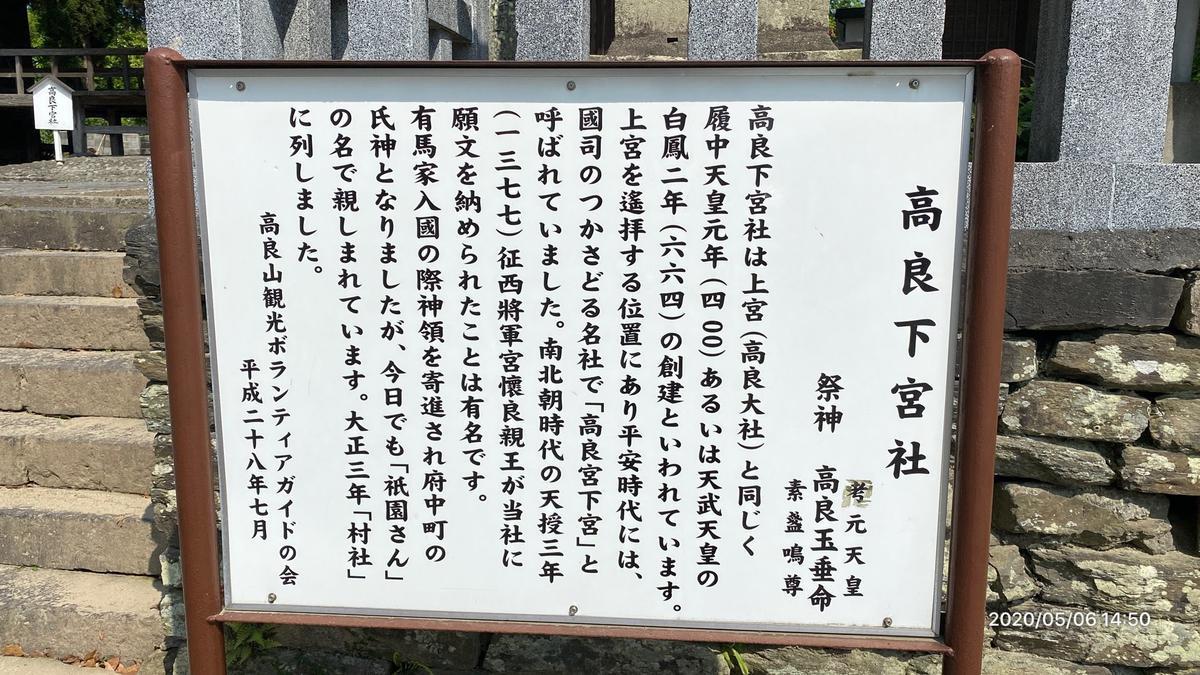 高良下宮社
祭神
考元天皇
高良玉垂命
素盞鳴尊
高良下宮社は上宮(高良大社)と同じく
履中天皇元年(四〇〇)あるいは天武天皇の
白鳳二年(六六四)の創建といわれています。
上宮を遙拝する位置にあり平安時代には、
國司のつかさどる名社で「高良宮下宮」と
呼ばれていました。南北朝時代の天授三年
(一三七七)征西將軍宮懷良親王が当社に
願文を納められたことは有名です。
有馬家入國の際神領を寄進され府中町の
氏神となりましたが、今日でも「祇園さん」
の名で親しまれています。大正三年「村社」
に列しました。
高良山観光ボランティアガイドの会
平成二十八年七月
高良下宮社
2020/05/06 14:50